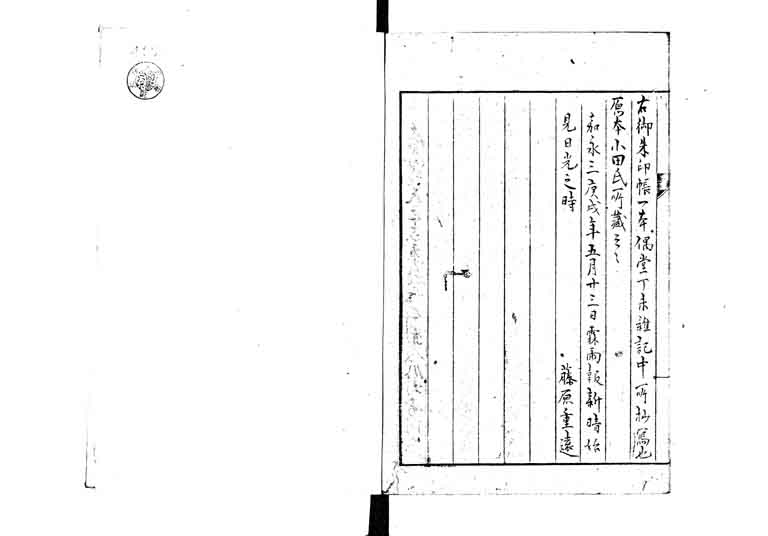 右御朱印帳一本偶堂丁未雑記中所抄写也
原本小田氏所蔵云々
嘉永三庚戌年五月廿三日霖雨報新晴始
見日光之時
藤原重遠